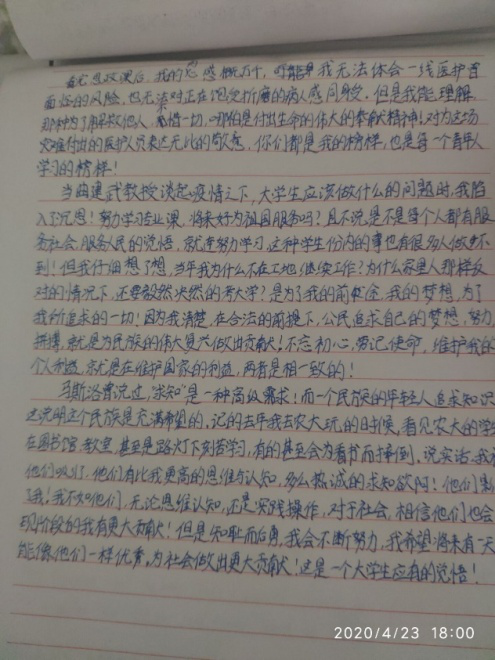 看完思政课后,我的思感慨万千,可能单我无法体会一线医护者
面临的风险,也无法对正在饱受折磨的病人感同身受,但是我能理解
那种为了解救他人,不惜一切,哪怕是付出生命的伟大的奉献精神!对为这场
灾难付出的医护人员表达无比的敬意,你们都是我的榜样,也是每一个青年人
学习的榜样!
当曲建武教授谈起疫情之下,大学生应该做什么的问题时,我陷
入了沉思!努力学习专业课,将来好为祖国服务吗?且不说是不是每个人都有服
务社会,服务人民的觉悟,就连努力学习,这种学生份内的事也有很多人做不
到!但我仔细想了想,当年我为什么不在工地继续工作?为什么家里人那样反
对的情况下,还要毅然决然的考大学?是为了我的前途,我的梦想,为了
我所追求的一切!因为我清楚,在合法的前提下,公民追求自己的梦想,努力
拼搏,就是为民族的伟大复兴做出贡献!不忘初心,牢记使命,维护我的
个人利益,就是在维护国家的利益,两者是相一致的!
马斯洛曾说过,"求知"是一种高级需求!而一个民族的年轻人追求知识
这说明这个民族是充满希望的,记的去年我去农大玩的时候,看见农大的学
在图书馆,教室,甚至是路灯下刻苦学习,有的甚至会为看书而挨冻,说实话,我
他们吸引,他们有比我更高的思维与认知,多么热诚的求知欲阿!他们
了我!我不如他们,无论思维认知,还是实践操作,对于社会,相信他们也会
现阶段的我有更大贡献!但是知耻而后勇,我会不断努力,我希望将来有一天
能像他们一样优秀,为社会做出更大贡献!这是一个大学生应有的觉悟!
2020/4/23 18:00